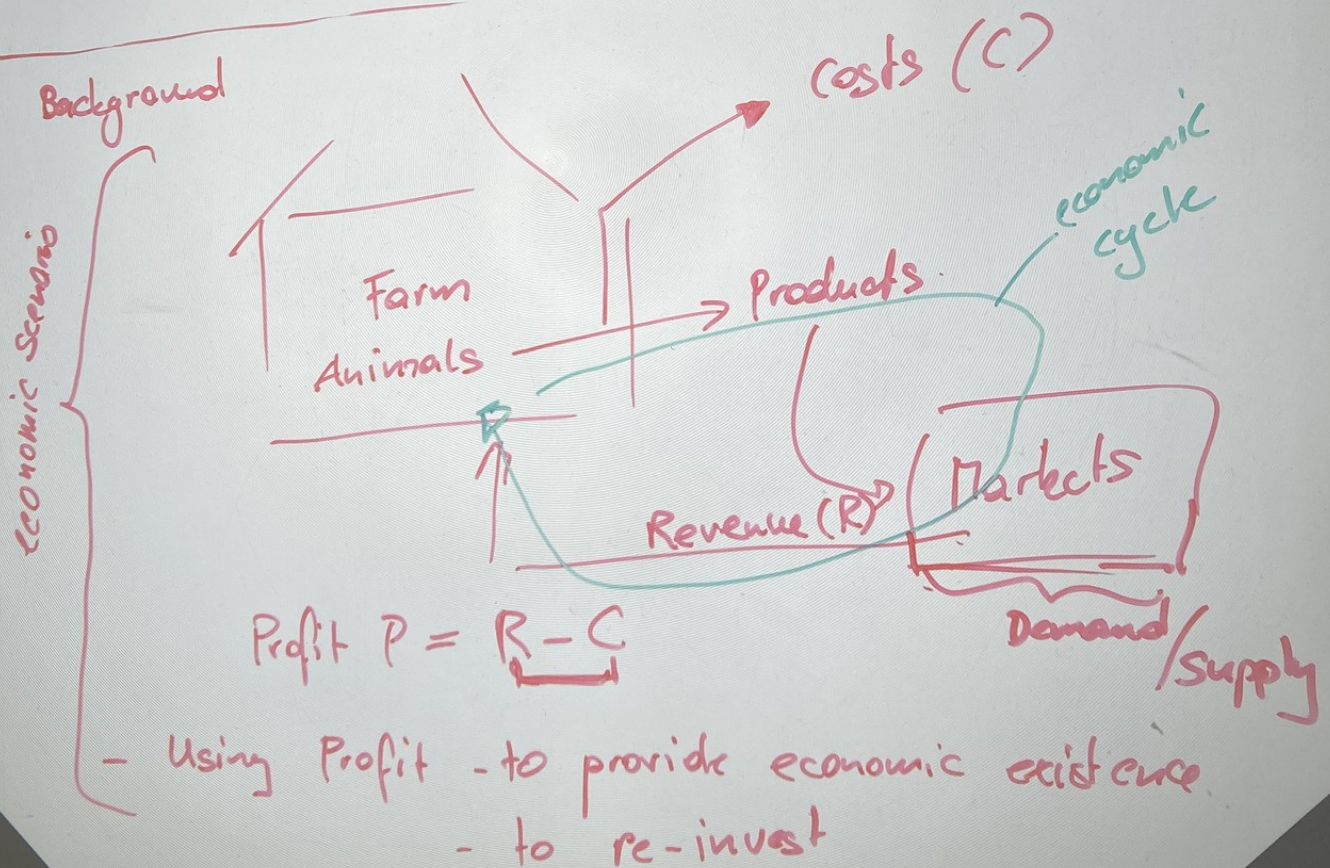 Background
Costs (C)
economic
cycle
economic scenario
Farm
Animals
Products
Markets
Revenue (R)
Demand/supply
Profit P = R - C
- Using Profit - to provide economic existence
- to re-invest